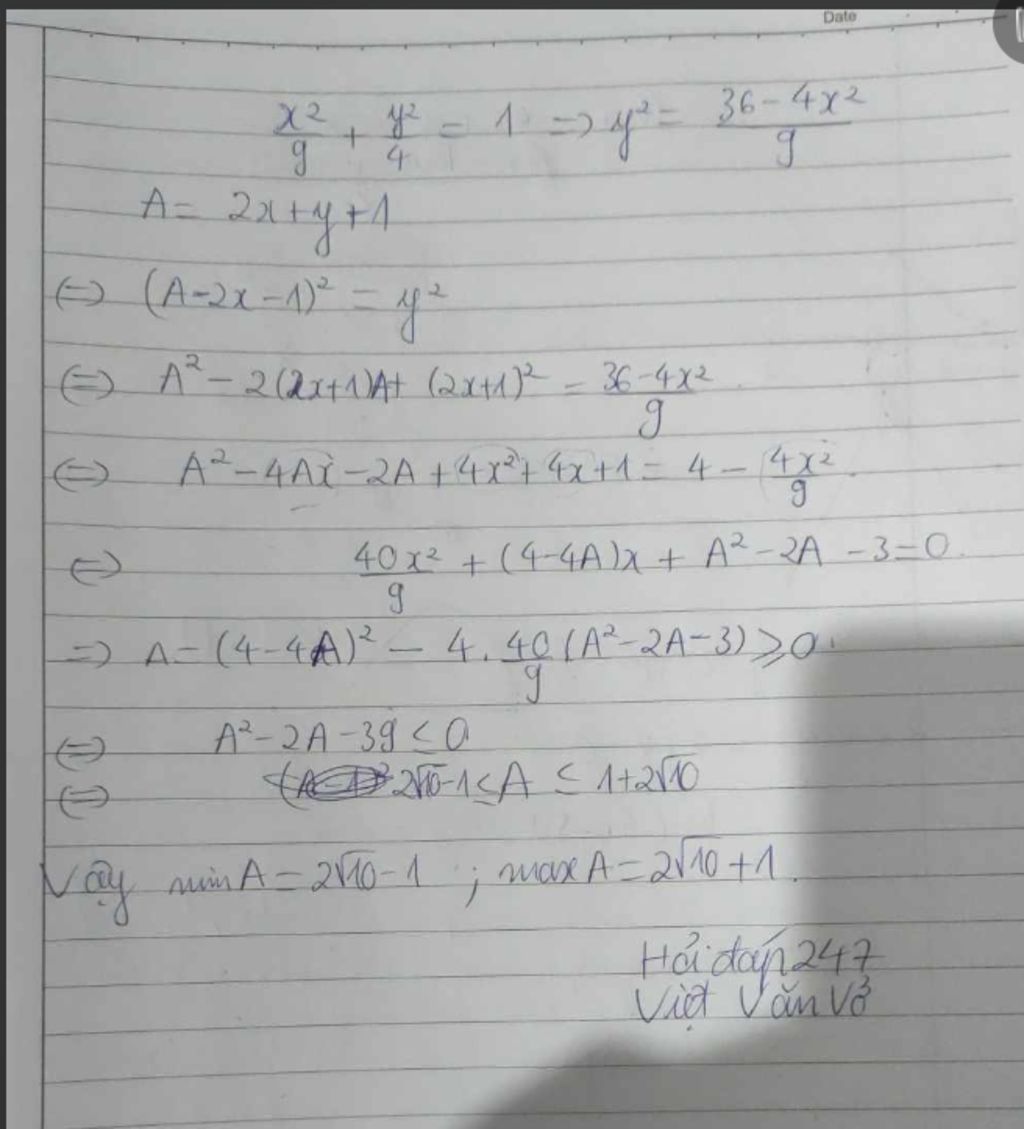 Date
x²/9 + y²/4 = 1 => y² = (36 - 4x²)/9
A = 2x + y + 1
<=> (A - 2x - 1)² = y²
<=> A² - 2(2x+1)A + (2x+1)² = (36 - 4x²)/9
<=> A² - 4Ax - 2A + 4x² + 4x + 1 = 4 - 4x²/9
<=> 40x²/9 + (4 - 4A)x + A² - 2A - 3 = 0
=> Δ = (4 - 4A)² - 4 . 40/9 (A² - 2A - 3) ≥ 0.
<=> A² - 2A - 39 ≤ 0
<=> 2√10 - 1 ≤ A ≤ 1 + 2√10
Vậy min A = 2√10 - 1 ; max A = 2√10 + 1.
Hỏi đáp 247
Việt Văn Vở